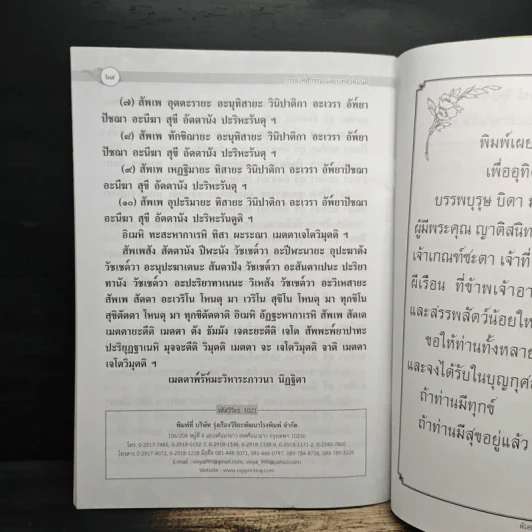 ๖๙
(๗) สัพเพ อุตตะรายะ อะนุทิสายะ วินิปาติกา อะเวรา อัพ์ยา
ปัชฌา อะนีฆา สุขี อัตตานัง ปะริหะรันตุ ฯ
(๘) สัพเพ ทักขิณายะ อะนุทิสายะ วินิปาติกา อะเวรา อัพ์ยา
ปัชฌา อะนีฆา สุขี อัตตานัง ปะริหะรันตุ ฯ
(๙) สัพเพ เหฏฐิมายะ ทิสายะ วินิปาติกา อะเวรา อัพ์ยาปัชฌา
อะนีฆา สุขี อัตตานัง ปะริหะรันตุ ฯ
(๑๐) สัพเพ อุปะริมายะ ทิสายะ วินิปาติกา อะเวรา อัพ์ยาปัชฌา
อะนีฆา สุขี อัตตานัง ปะริหะรันตูติ ฯ
อิเมหิ ทะสะหากาเรหิ ทิสา ผะระณา เมตตาเจโตวิมุตติ ฯ
สัพเพสัง สัตตานัง ปีฬะนัง วัชเชต์วา อะปีฬะนายะ อุปะฆาตัง
วัชเชต์วา อะนุปะฆาเตนะ สันตาปัง วัชเชต์วา อะสันตาเปนะ ปะริยา
ทานัง วัชเชต์วา อะปะริยาทาเนนะ วิเหสัง วัชเชต์วา อะวิเหสายะ
สัพเพ สัตตา อะเวริโน โหนตุ มา เวริโน สุขิโน โหนตุ มา ทุกขิโน
สุขิตัตตา โหนตุ มา ทุกขิตัตตาติ อิเมหิ อัฏฐะหากาเรหิ สัพเพ สัตเต
เมตตายะตีติ เมตตา ตัง ธัมมัง เจตะยะตีติ เจโต สัพพะพ์ยาปาทะ
ปะริยุฏฐาเนหิ มุจจะตีติ วิมุตติ เมตตา จะ เจโตวิมุตติ จาติ เมตตา
เจโตวิมุตติ ฯ
เมตตาพ์รัห์มะวิหาระภาวนา นิฏฐิตา
รหัสวีริยะ 1021
พิมพ์ที่ บริษัท รุ่งเรืองวิริยะพัฒนาโรงพิมพ์ จำกัด
E-mail : viriya199@gmail.com, viriya_199@yahoo.com
Website : www.rvpprinting.com
พิมพ์เผย
เพื่ออุทิ
บรรพบุรุษ บิดา
ผู้มีพระคุณ ญาติสนิท
เจ้าเกณฑ์ชะตา เจ้าที่
ผีเรือน ที่ข้าพเจ้าอา
และสรรพสัตว์น้อยให
ขอให้ท่านทั้งหลาย
และจงได้รับในบุญกุศ
ถ้าท่านมีทุกข์
ถ้าท่านมีสุขอยู่แล้ว